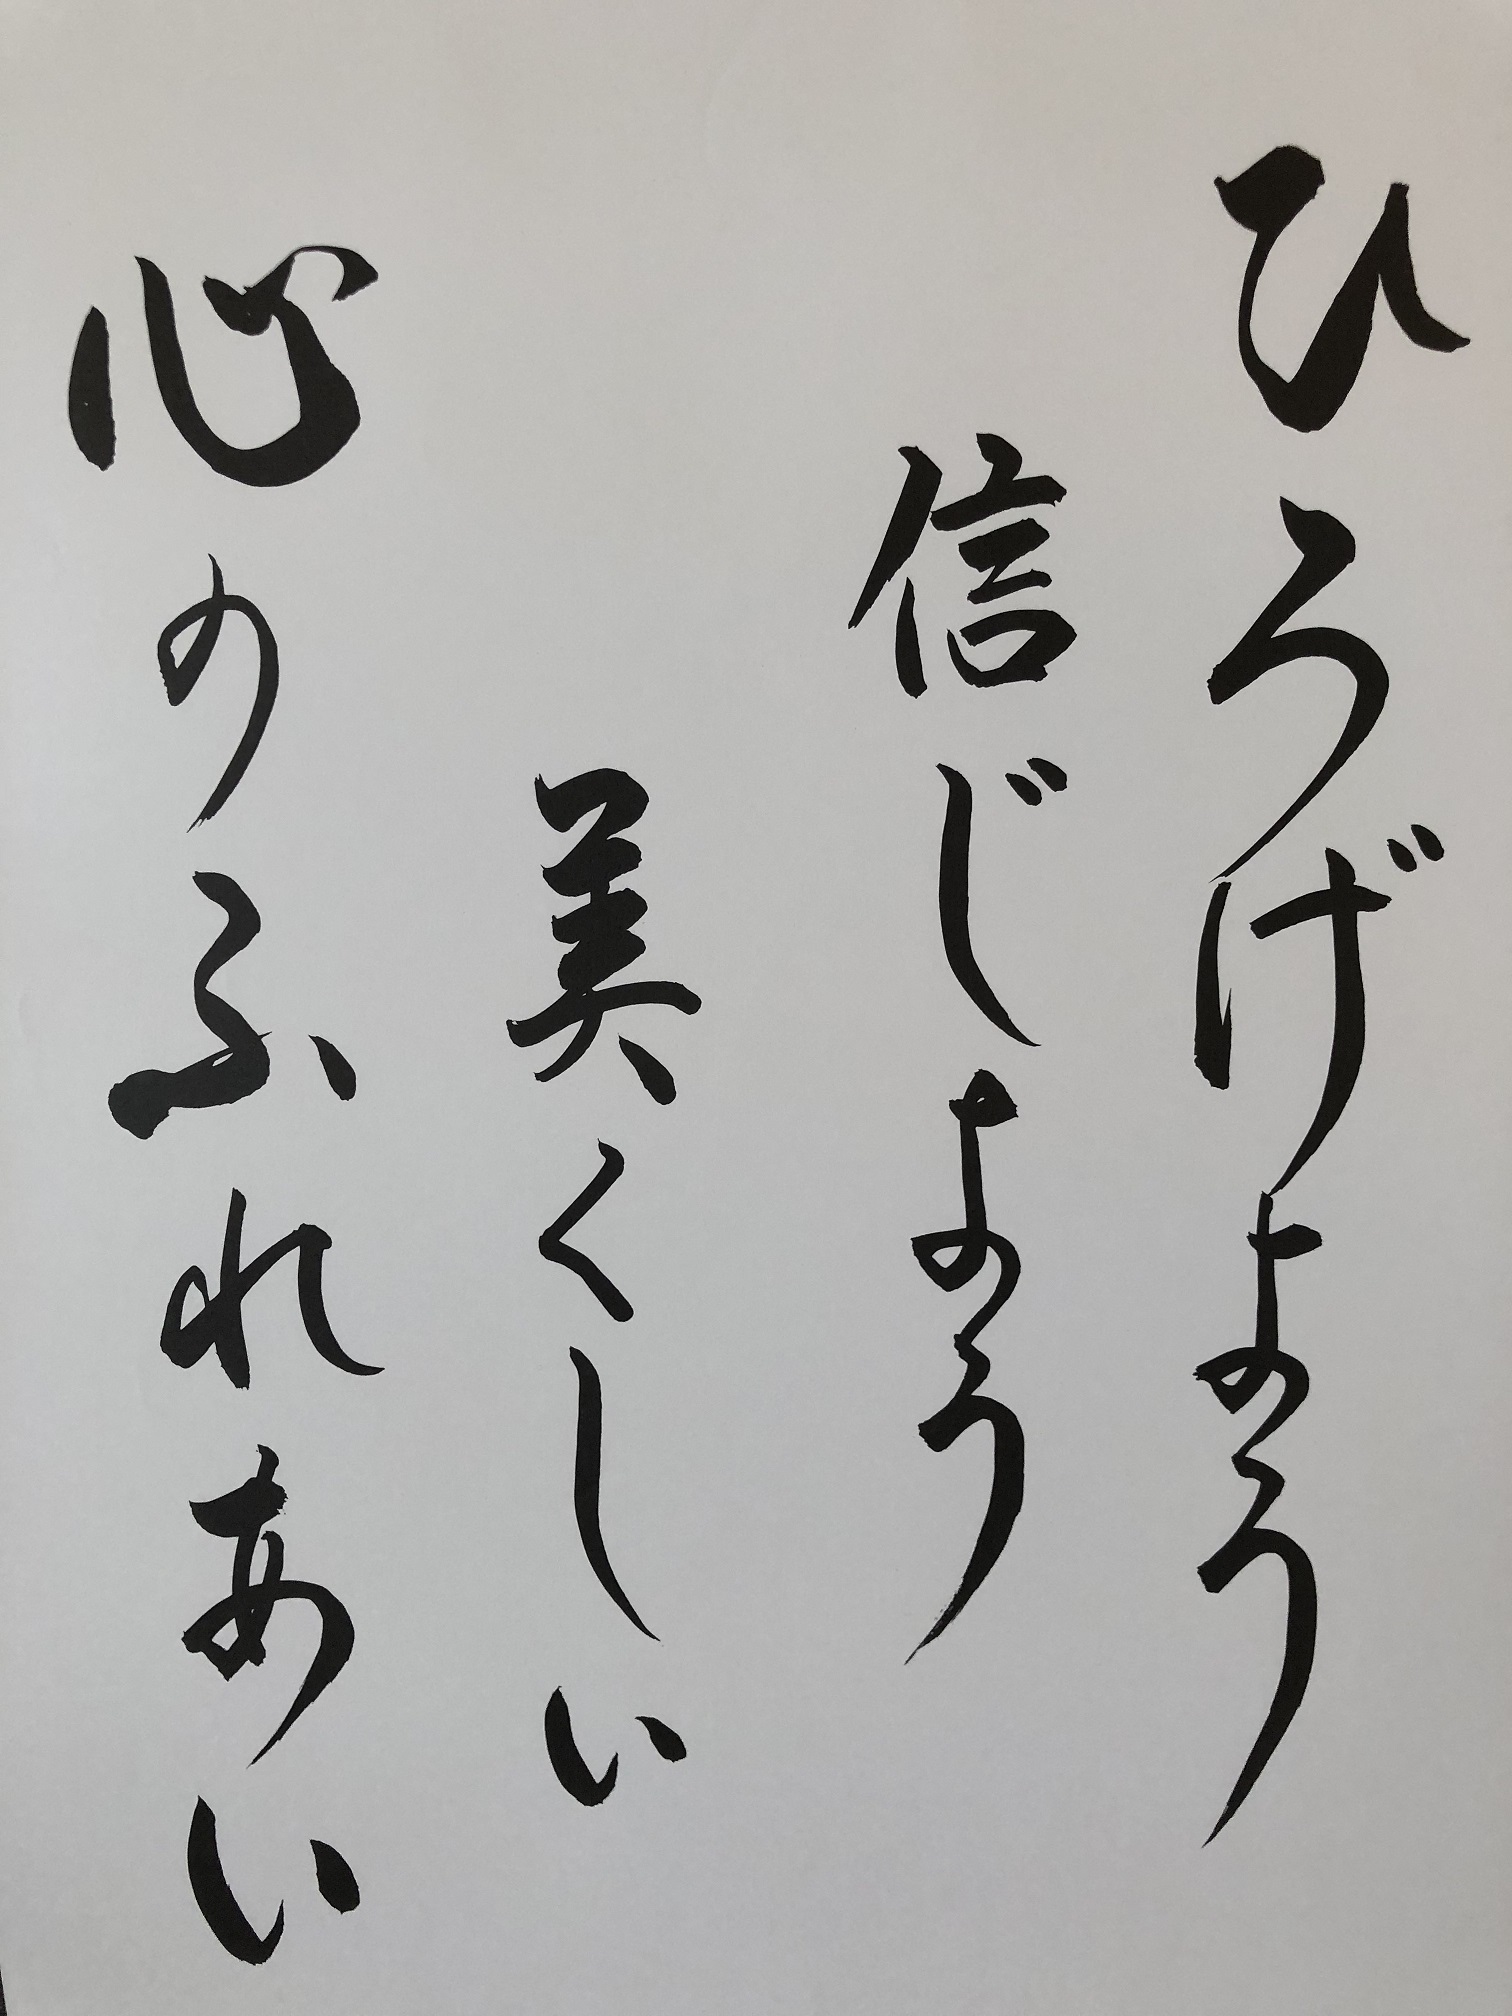 ひろげよう
信じよう
美くしい
心のふれあい